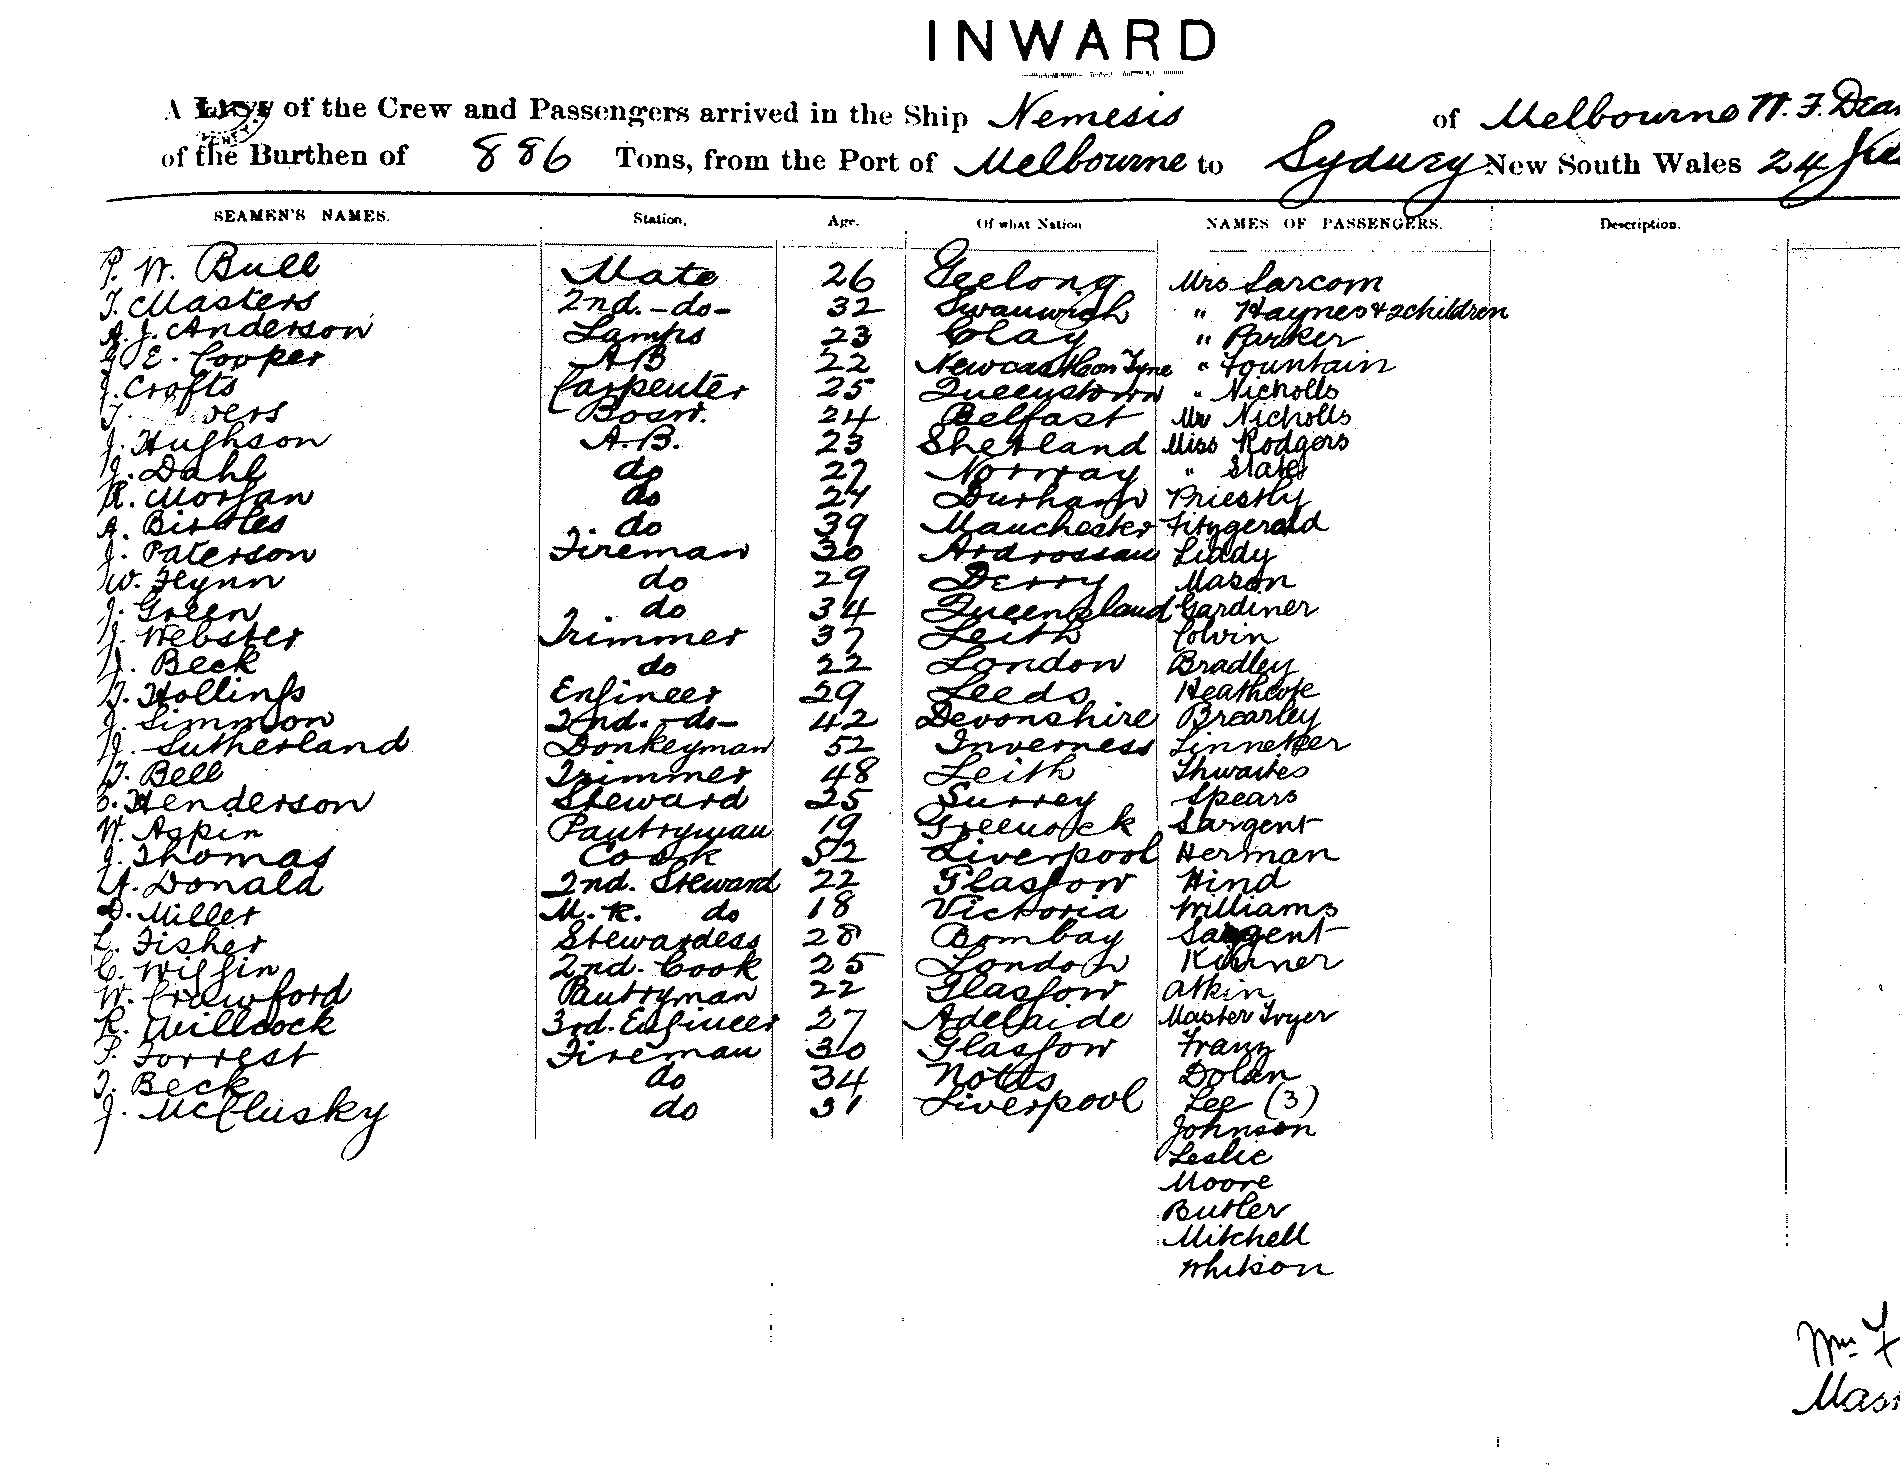 INWARD
A List of the Crew and Passengers arrived in the Ship Nemesis of Melbourne
of the Burthen of 886 Tons, from the Port of Melbourne to Sydney New South Wales 24
SEAMEN'S NAMES. Station. Age. Of what Nation NAMES OF PASSENGERS. Description.
P. W. Bull Mate 26 Geelong Mrs Sarcom
T. Masters 2nd. -do- 32 Swanwich " Haynes & 2 children
A. J. Anderson Lamps 23 Clay " Parker
E. Cooper AB 22 Newcastle on Tyne " Fountain
J. Crofts Carpenter 25 Queenstown " Nicholls
Bosn. 24 Belfast Mr Nicholls
J. Hughson A.B. 23 Shetland Miss Rodgers
J. Dahl do 27 Norway " Slater
R. Morgan do 24 Durham Priestly
A. Birtles do 39 Manchester Fitzgerald
J. Paterson Fireman 30 Ardrossan Liddy
W. Flynn do 29 Derry Mason
J. Green do 34 Queensland Gardiner
J. Webster Trimmer 37 Leith Colvin
J. Beck do 22 London Bradley
T. Hollings Engineer 29 Leeds Heathcote
J. Simmon 2nd. -do- 42 Devonshire Brearley
Sutherland Donkeyman 52 Inverness Linneker
T. Bell Trimmer 48 Leith Thwaites
Henderson Steward 25 Surrey Spears
W. Aspin Pantryman 19 Greenock Sargent
J. Thomas Cook 52 Liverpool Herman
Donald 2nd. Steward 22 Glasgow Hind
D. Miller M. R. do 18 Victoria Williams
L. Fisher Stewardess 28 Bombay Sargent
C. Wiffin 2nd. Cook 25 London Kirner
W. Crawford Pantryman 22 Glasgow Atkin
R. Willcock 3rd. Engineer 27 Adelaide Master Fryer
P. Forrest Fireman 30 Glasgow Franz
T. Beck do 34 Notts Dolan
J. McClusky do 31 Liverpool Lee (3)
Johnson
Leslie
Moore
Butler
Mitchell
Whitson